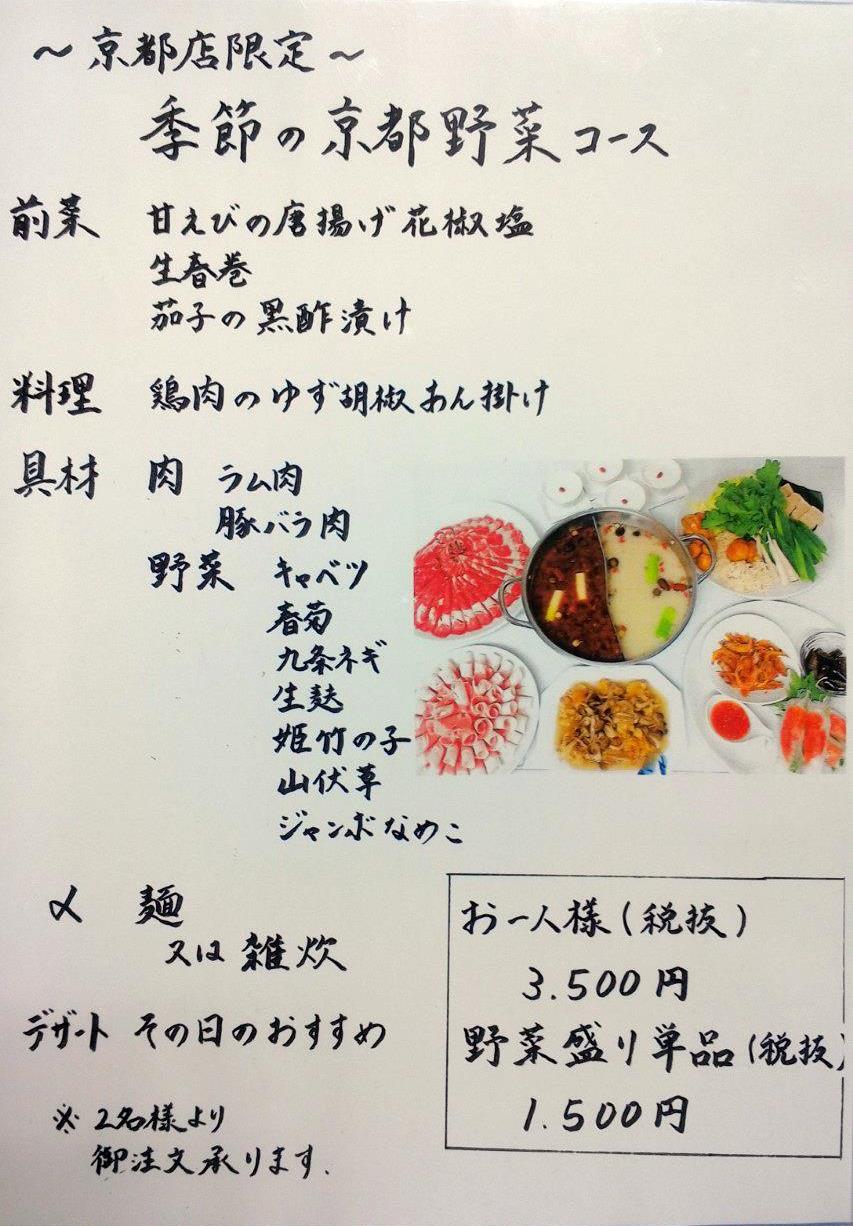 ～京都店限定～
季節の京都野菜コース
前菜 甘えびの唐揚げ花椒塩
生春巻
茄子の黒酢漬け
料理 鶏肉のゆず胡椒あん掛け
具材 肉 ラム肉
豚バラ肉
野菜 キャベツ
春菊
九条ネギ
生麩
姫竹の子
山伏草
ジャンボなめこ
〆 麺
又は雑炊
デザート その日のおすすめ
※2名様より
御注文承ります.
お一人様(税抜)
3.500円
野菜盛り単品(税抜)
1.500円